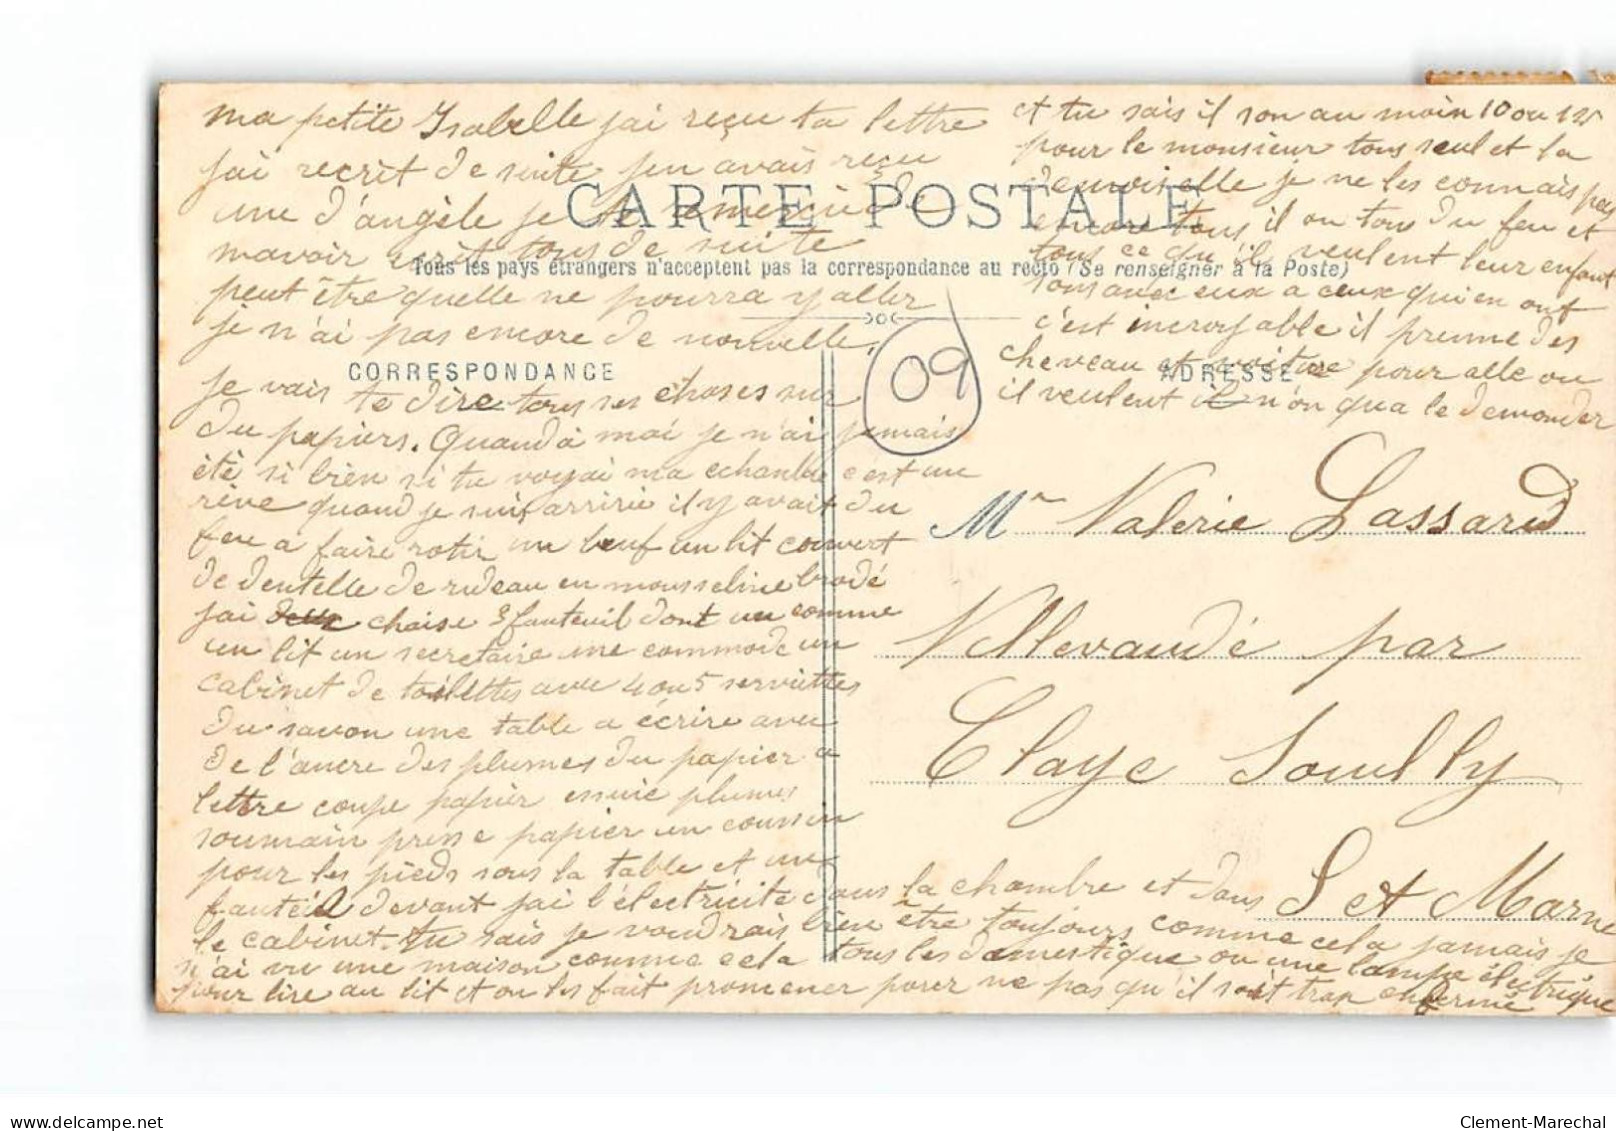 ma petite Isabelle jai reçu ta lettre
jai recrit de suite jen avais reçu
une d'angèle je te remercie de
mavoir ecrit tous de suite
peut être quelle ne pourra y aller
je n'ai pas encore de nouvelle,
je vais te dire tous ses choses sur
du papiers. Quand à moi je n'ai jamais
été si bien si tu voyai ma chambre c'est un
rêve quand je suis arrivé il y avait du
feu a faire rotir un beuf un lit couvert
de dentelle de rideau en mousseline brodé
jai deux chaise 3 fauteuil dont un comme
un lit un secretaire une commode un
cabinet de toilettes avec 4 ou 5 serviettes
du savon une table a écrire avec
de l'ancre des plumes du papier a
lettre coupe papier essuie plumes
soumain presse papier un coussin
pour les pieds sous la table et un
fauteil devant jai l'électricité dans la chambre et dans
le cabinet. tu sais je voudrais bien être toujours comme cela jamais je
n'ai vu une maison comme cela tous les domestique ou une lampe électrique
pour lire au lit et on les fait promener pour ne pas qu'il soit trop enfermé
et tu sais il son au moin 10 ou 12
pour le monsieur tous seul et la
demoiselle je ne les connais pas
encore tous il on tous du feu et
tous ce qu'il veulent leur enfant
sons avec eux a ceux qui en ont
c'est incroyable il prenne des
cheveau et voiture pour alle ou
il veulent il n'on qua le demander
CARTE POSTALE
Tous les pays étrangers n'acceptent pas la correspondance au recto (Se renseigner à la Poste)
CORRESPONDANCE
ADRESSE
09
M Valerie Lassard
Villevaudé par
Claye Souilly
S et Marne
delcampe.net
Clement-Marechal